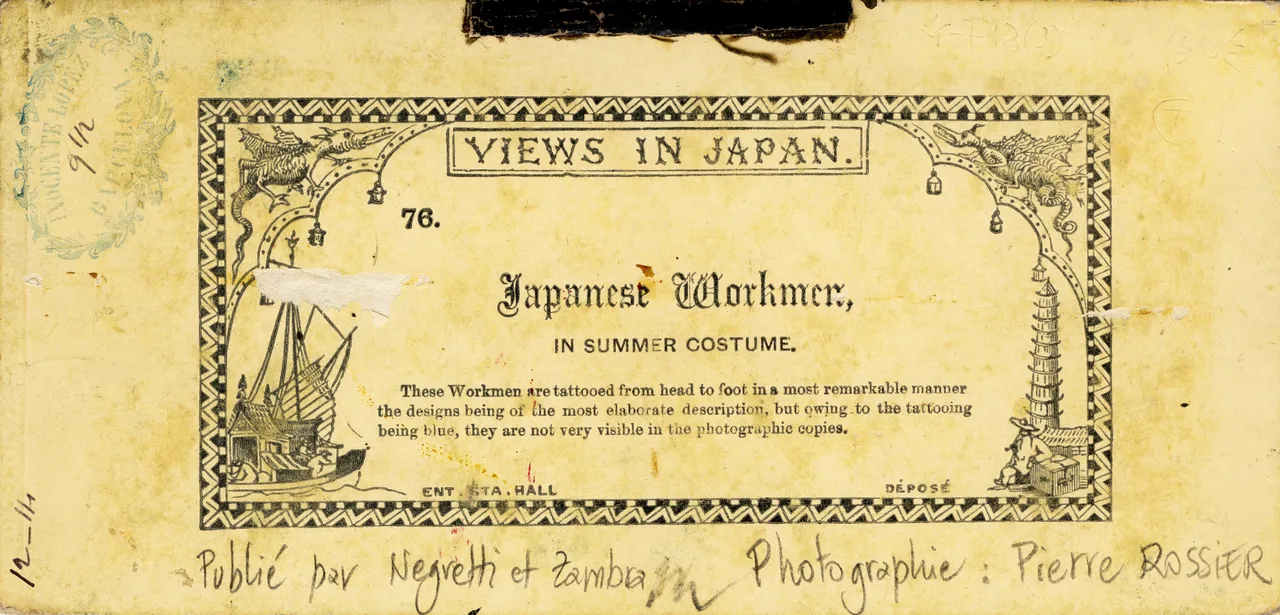 INOCENTE LOPEZ
BARCELONA
9 1/2
VIEWS IN JAPAN.
76.
Japanese Workmen,
IN SUMMER COSTUME.
These Workmen are tattooed from head to foot in a most remarkable manner
the designs being of the most elaborate description, but owing to the tattooing
being blue, they are not very visible in the photographic copies.
ENT. STA. HALL
DÉPOSÉ
12-14
Publié par Negretti et Zambra
Photographie : Pierre ROSSIER